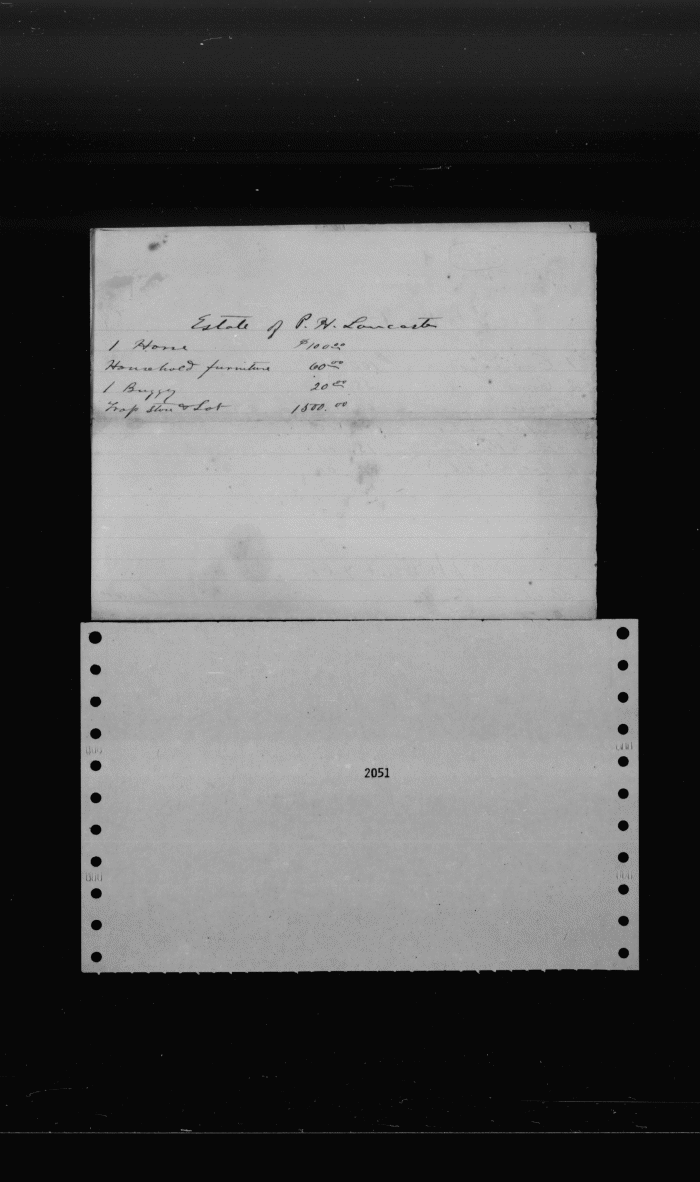 Estate of P. H. Lancaster
1 Horse $100.00
Household furniture 60.00
1 Buggy 20.00
& Lot 1500.00
2051